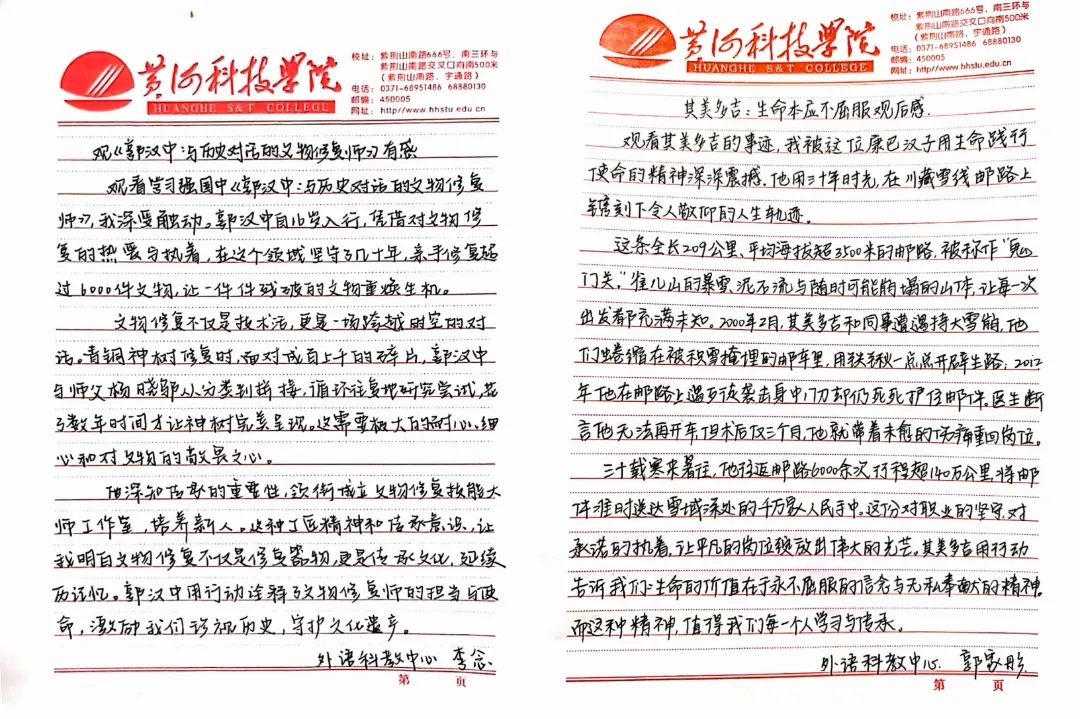 黄河科技学院
HUANGHE S&T COLLEGE
校址：紫荆山南路666号，南三环与
紫荆山南路交叉口向南500米
（紫荆山南路，宇通路）
电话：0371-68951486 68880130
邮编：450005
网址：http//www.hhstu.edu.cn
观《郭汉中：与历史对话的文物修复师》有感
观看学习强国中《郭汉中：与历史对话的文物修复
师》，我深受触动。郭汉中自16岁入行，凭借对文物修
复的热爱与执着，在这个领域坚守了几十年，亲手修复超
过6000件文物，让一件件残破的文物重焕生机。
文物修复不仅是技术活，更是一场跨越时空的对
话。青铜神树修复时，面对成百上千的碎片，郭汉中
与师父杨晓邬从分类到拼接，循环往复地研究尝试，花
了数年时间才让神树完美呈现。这需要极大的耐心、细
心和对文物的敬畏之心。
他深知传承的重要性，领衔成立文物修复技能大
师工作室，培养新人。这种工匠精神和传承意识，让
我明白文物修复不仅是修复器物，更是传承文化，延续
历记忆。郭汉中用行动诠释了文物修复师的担当与使
命，激励我们珍视历史，守护文化遗产。
外语科教中心 李念
第 页
黄河科技学院
HUANGHE S&T COLLEGE
校址：紫荆山南路666号，南三环与
紫荆山南路交叉口向南500米
（紫荆山南路，宇通路）
电话：0371-68951486 68880130
邮编：450005
网址：http//www.hhstu.edu.cn
其美多吉：生命本应不屈服观后感
观看其美多吉的事迹，我被这位康巴汉子用生命践行
使命的精神深深震撼。他用三十年时光，在川藏雪线邮路上
镌刻下令人敬仰的人生轨迹。
这条全长209公里、平均海拔超3500米的邮路，被称作“鬼
门关”。雀儿山的暴雪、泥石流与随时可能崩塌的山体，让每一次
出发都充满未知。2000年2月，其美多吉和同事遭遇特大雪崩，他
们蜷缩在被积雪掩埋的邮车里，用铁锹一点点开辟生路；2012
年他在邮路上遇歹徒袭击身中刀却仍死死护住邮件。医生断
言他无法再开车，但术后仅三个月，他就带着未愈的伤痛重回岗位。
三十载寒来暑往，他往返邮路6000余次，行程超140万公里，将邮
件准时送达雪域深处的千万家人民手中。这份对职业的坚守、对
承诺的执着，让平凡的岗位绽放出伟大的光芒。其美多吉用行动
告诉我们：生命的价值在于永不屈服的信念与无私奉献的精神。
而这种精神，值得我们每一个人学习与传承。
外语科教中心 郭家彤
第 页